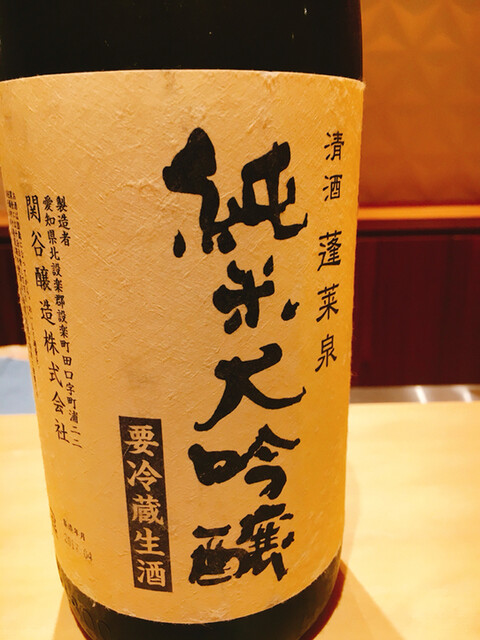 清酒 蓬莱泉
純米大吟醸
要冷蔵生酒
製造者
愛知県北設楽郡設楽町田口字町浦二二
関谷醸造株式会社
製造年月
2017.04